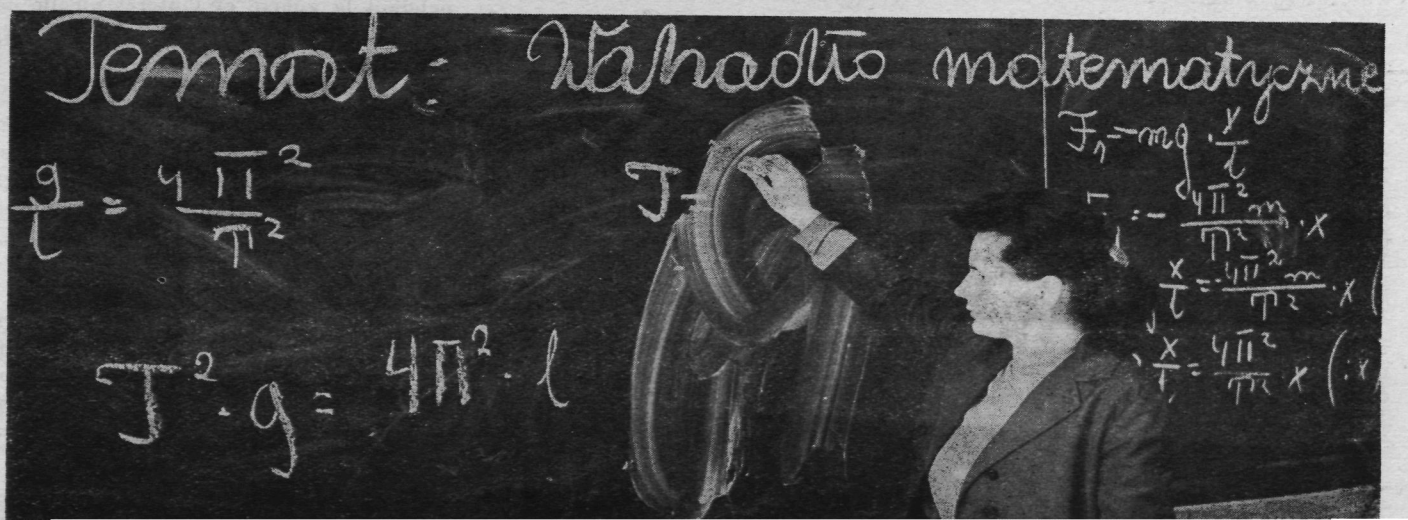 Temat: Wahadło matematyczne
g/l = 4π²/T²
T² · g = 4π² · l
T =
F₁ = -mg · x/l
= - 4π²m/T² · x
x/l = - 4π²m/T² · x (
x/l = 4π²/T² x (: x)